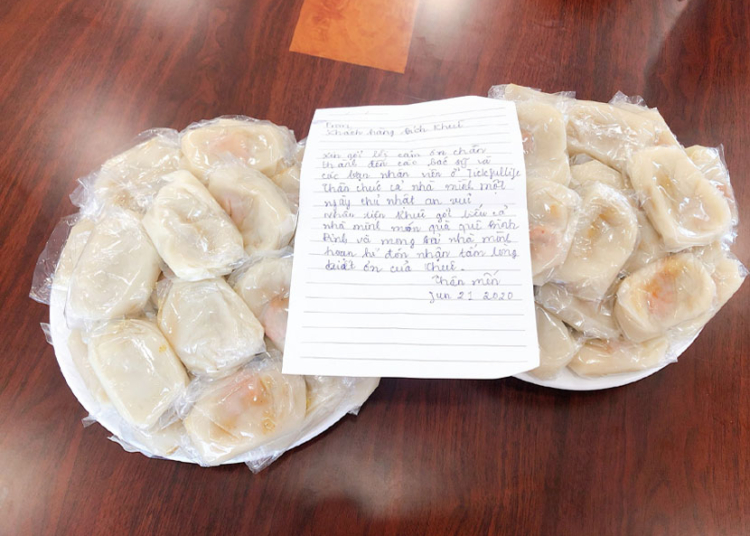 From:
Khách hàng Bích Khuê
Xin gởi lời cảm ơn chân
thành đến các bác sỹ và
các bạn nhân viên ở
Thân chúc cả nhà mình một
ngày chủ nhật an vui
nhân tiện Khuê gởi biếu cả
nhà mình món quà quê bình
định và mong cả nhà mình
hoan hỉ đón nhận tấm lòng
biết ơn của Khuê.
Thân mến
Jun 21 2020